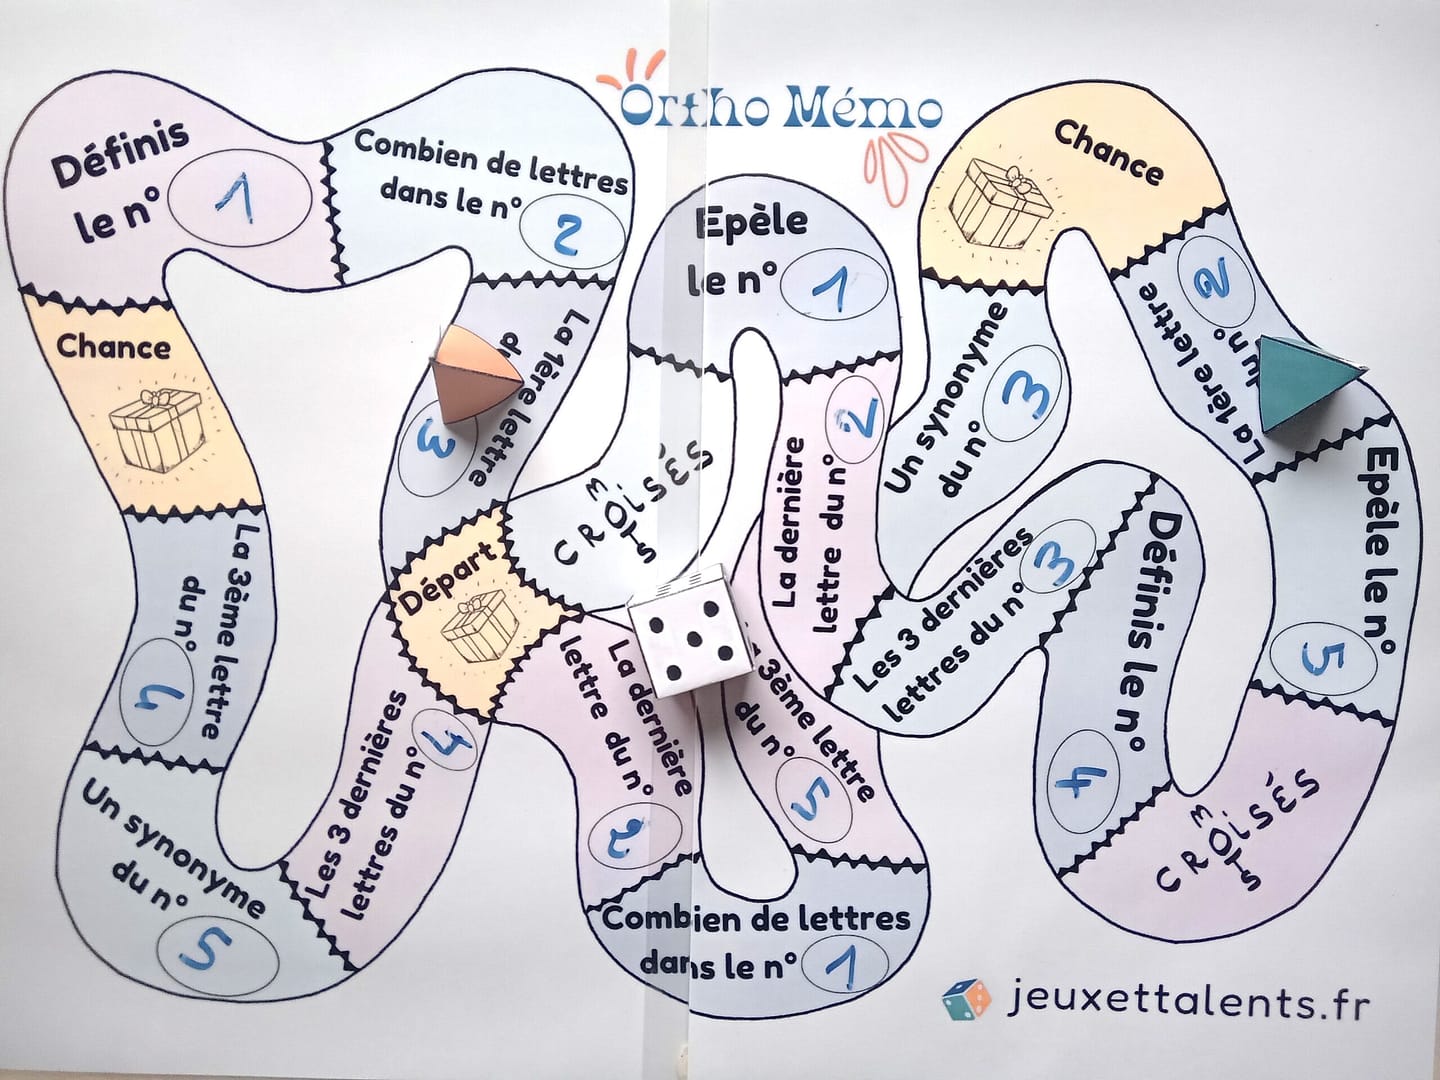 Ortho Mémo
Définis
le n° 1
Combien de lettres
dans le n° 2
La 1ère lettre
du n° 3
Chance
La 3ème lettre
du n° 4
Un synonyme
du n° 5
Les 3 dernières
lettres du n°
Départ
MOTS
CROISÉS
Epèle
le n° 1
La dernière
lettre du n° 2
Les 3 dernières
lettres du n° 3
Définis le n° 4
MOTS
CROISÉS
Epèle le n° 5
La 1ère lettre
du n° 2
Chance
Un synonyme
du n° 3
La 3ème lettre
du n° 5
Combien de lettres
dans le n° 1
La dernière
lettre du n° 2
jeuxettalents.fr